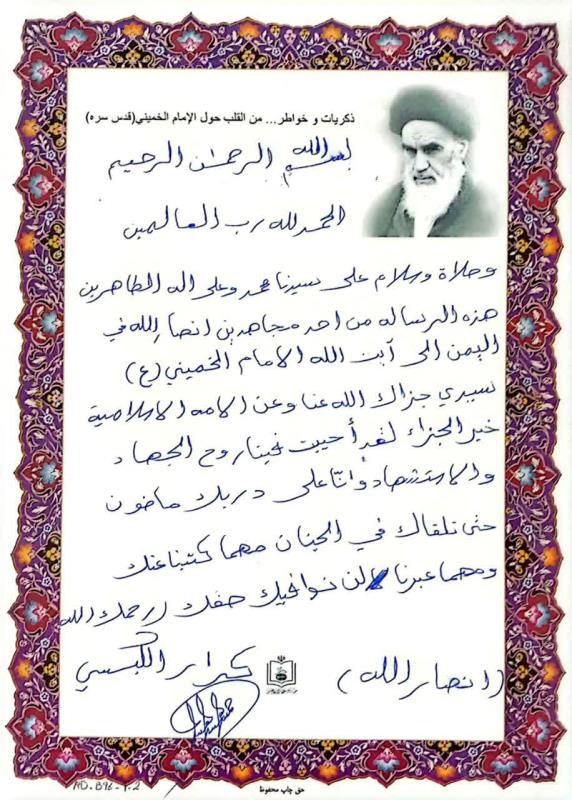 ذكريات و خواطر... من القلب حول الإمام الخميني(قدس سره)
بسم الله الرحمن الرحيم
الحمد لله رب العالمين
وصلاة وسلام على سيدنا محمد وعلى اله الطاهرين
هذه الرساله من احد مجاهدين انصار الله في
اليمن الى آيت الله الامام الخميني (ع)
سيدي جزاك الله عنا وعن الامه الاسلامية
خير الجزاء لقد أحييت فينا روح الجهاد
والاستشهاد وانّا على دربك ماضون
حتى نلقاك في الجنان مهما كتبنا عنك
ومهما عبرنا لن نوافيك حقك رحمك الله
(انصار الله) كرار الكبسي
حق چاپ محفوظ